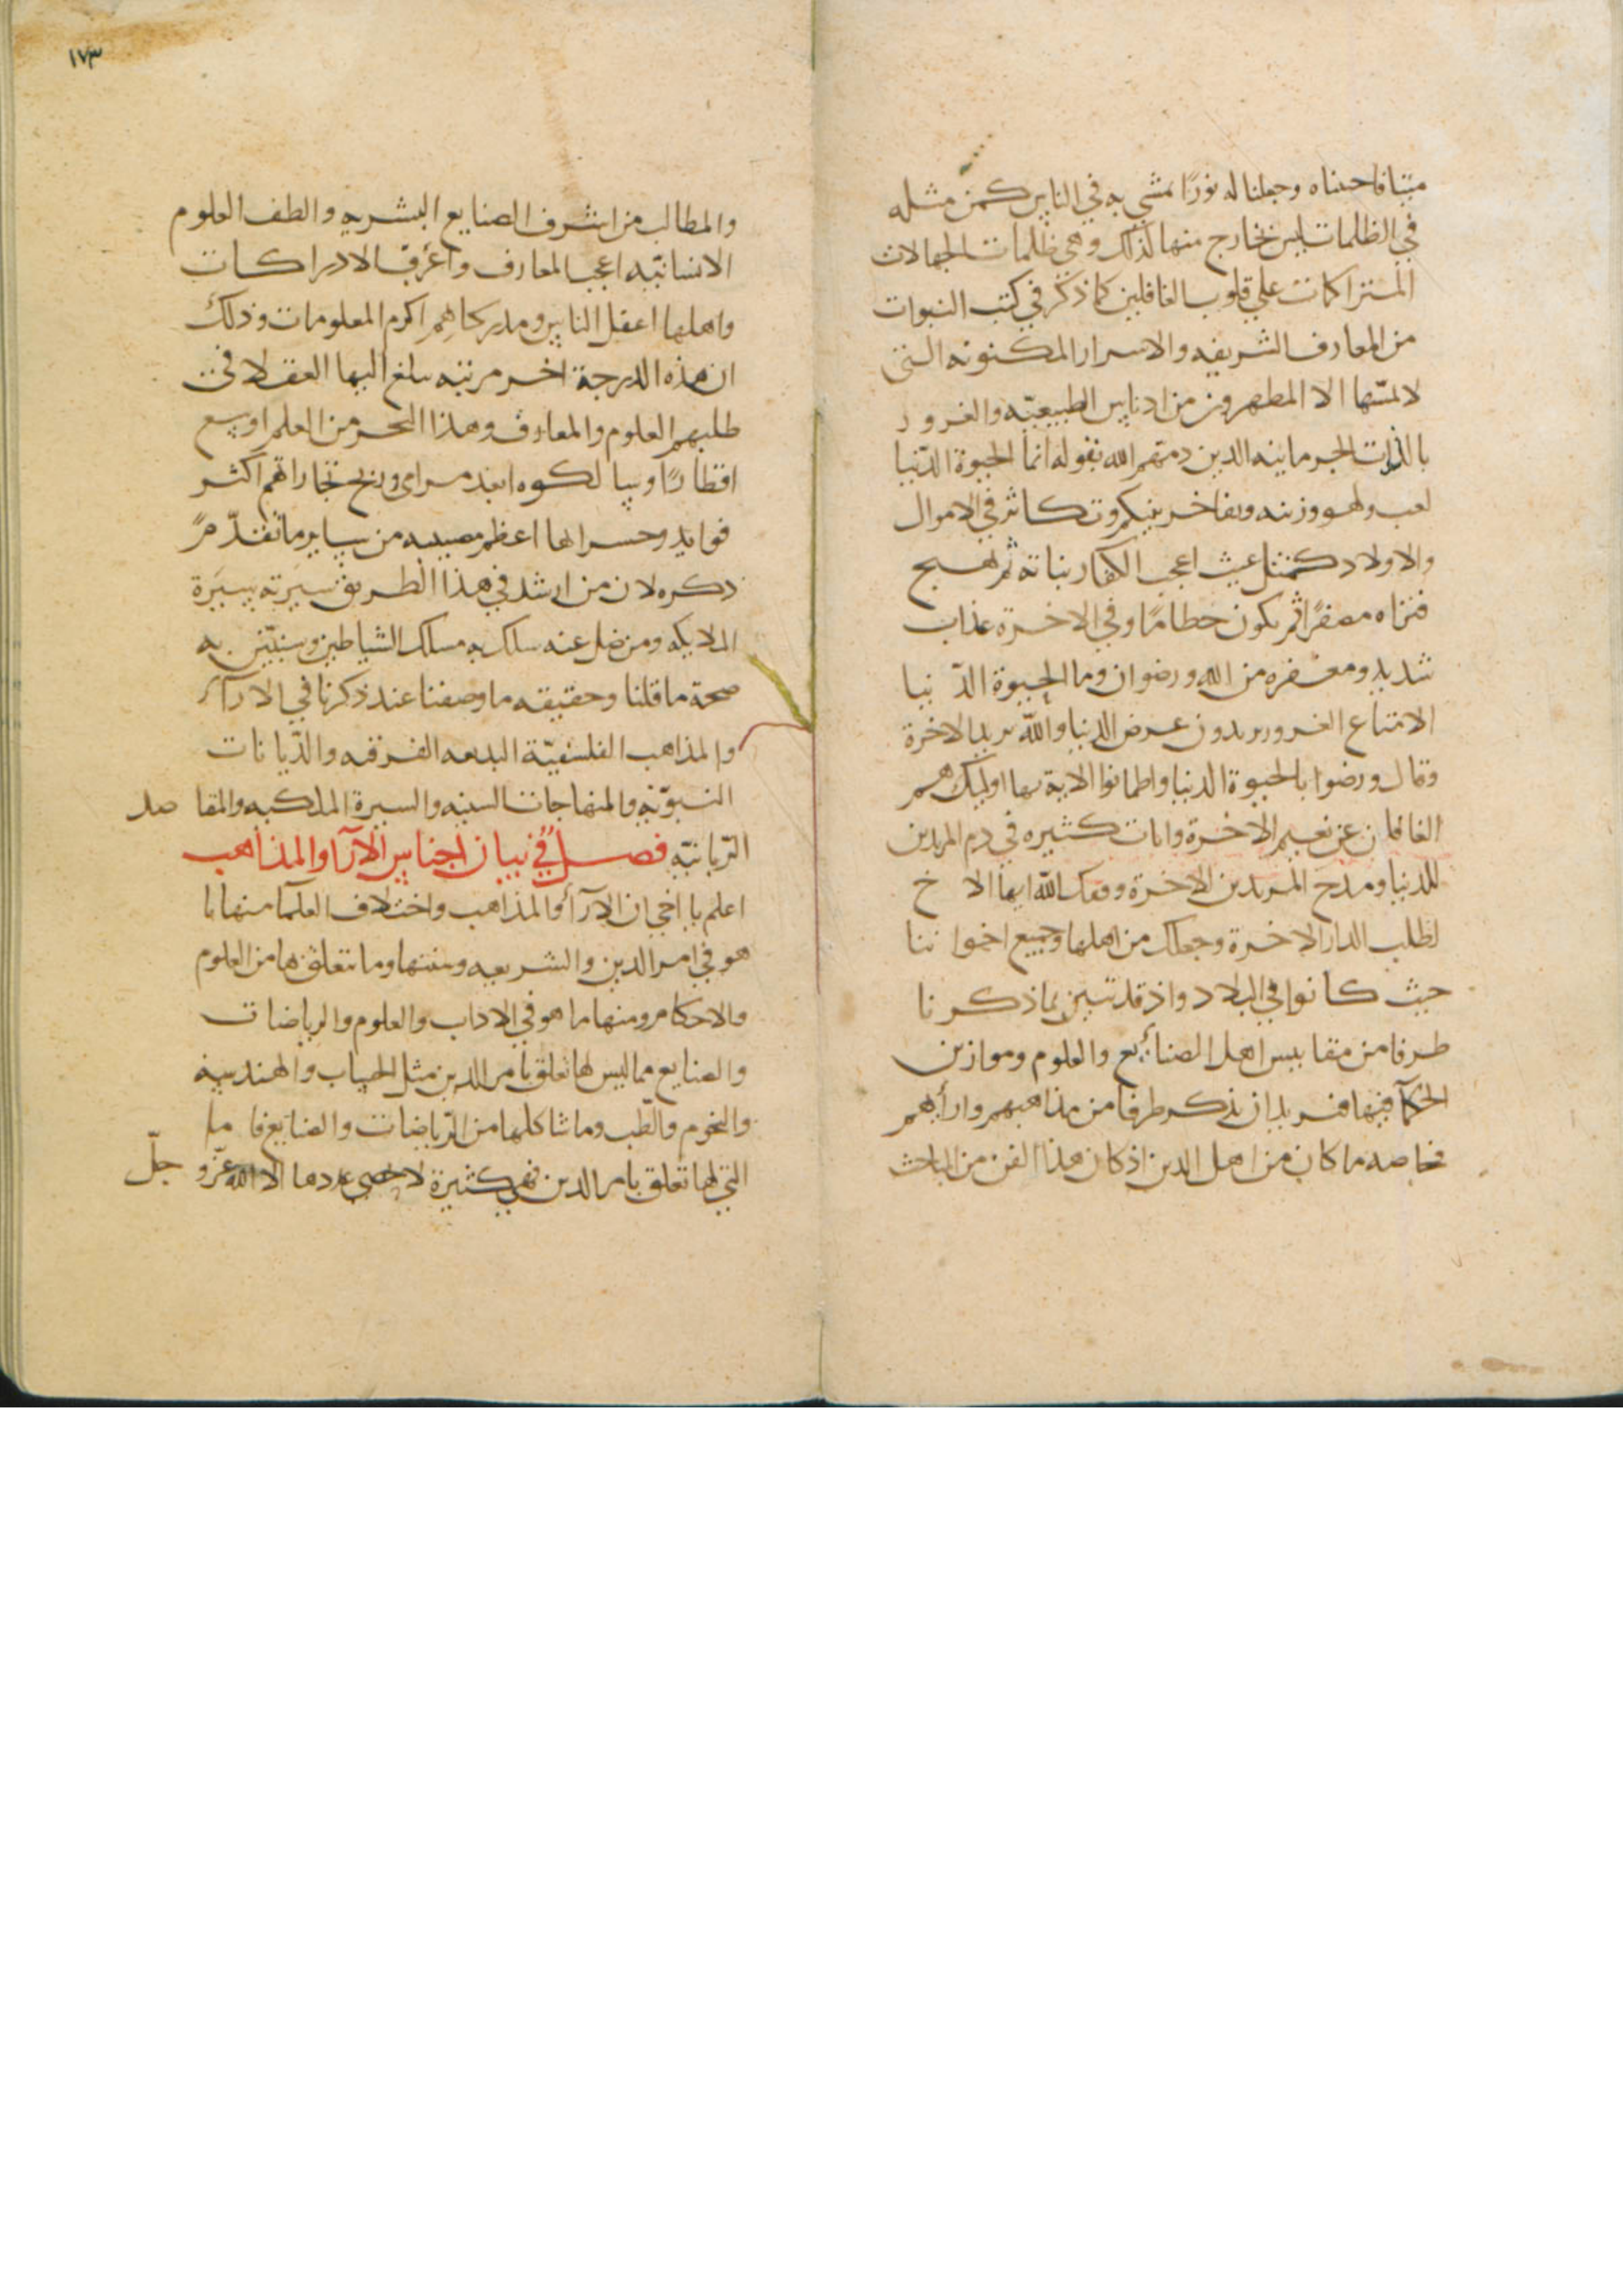 ميتا فاحييناه وجعلنا له نورًا يمشي به في الناس كمن مثله
في الظلمات ليس بخارج منها كذلك وهي ظلمات الجهالات
المتراكمات علي قلوب الغافلين كما ذكر في كتب النبوات
من المعارف الشريفه والاسرار المكنونه التي
لا يمسّها الا المطهرون من ادناس الطبيعيّه والغرور
باللذات الجرمانيه الذين ذمهم الله بقوله انما الحيوة الدّنيا
لعب ولهو وزينه وتفاخر بينكم وتكاثر في الاموال
والاولاد كمثل غيث اعجب الكفار نباته ثم يهيج
فتراه مصفرًا ثم يكون حطامًا وفي الاخرة عذاب
شديد ومغفره من الله ورضوان وما الحيوة الدّنيا
الا متاع الغرور يريدون عرض الدنيا والله يريد الاخرة
وقال ورضوا بالحيوة الدنيا واطمانوا الاية بها اوليك هم
الغافلون عن نعيم الاخرة وايات كثيره في ذم المريدين
للدنيا ومدح المريدين الاخرة وفقك الله ايها الاخ
لطلب الدار الاخرة وجعلك من اهلها وجميع اخواننا
حيث كانوا في البلاد واذ قد تبين بما ذكرنا
طرفا من مقاييس اهل الصنائع والعلوم وموازين
الحكمآ فيها فنريد ان نذكر طرفا من مذاهبهم وارأيهم
بخاصه ما كان من اهل الدين اذ كان هذا الفن من المباحث
١٧٣
والمطالب من اشرف الصنايع البشريه والطف العلوم
الانسانيّه اعجب المعارف واغرب الادراكات
واهلها اعقل الناس ومدركاهم اكرم المعلومات وذلك
ان هذه الدرجة اخر مرتبه يبلغ اليها العقلا في
طلبهم العلوم والمعارف وهذا البحر من العلم اوسع
اقطارًا وسالكوه ابعد مرامى وربح تجاراتهم اكثر
فوايد وخسرانها اعظم مصيبه من ساير ما تقدّم
ذكره لان من ارشد في هذا الطريق سيرته سيَرة
الملايكه ومن ضل عنه سلك به مسلك الشياطين وسنبيّن به
صحة ما قلنا وحقيقه ما وصفنا عند ذكرنا في الارآء
والمذاهب الفلسفيّة البدعه الفرقه والدّيانات
النبويّه والمنهاجات السنيه والسيرة الملكيه والمقاصد
الرّبانيّه فصل في بيان اجناس الآرآ والمذاهب
اعلم يا اخي ان الآرآ والمذاهب واختلاف العلمآ منها ما
هو في امر الدين والشريعه وسننها وما يتعلق بها من العلوم
والاحكام ومنها ما هو في الاداب والعلوم والرياضات
والصنايع مما ليس لها تعلق بامر الدين مثل الحساب والهندسه
والنجوم والطّب وما شاكلها من الرّياضات والصنايع فاما
التي لها تعلق بامر الدين فهي كثيرة لا يحصي عددها الا الله عزّ وجلّ